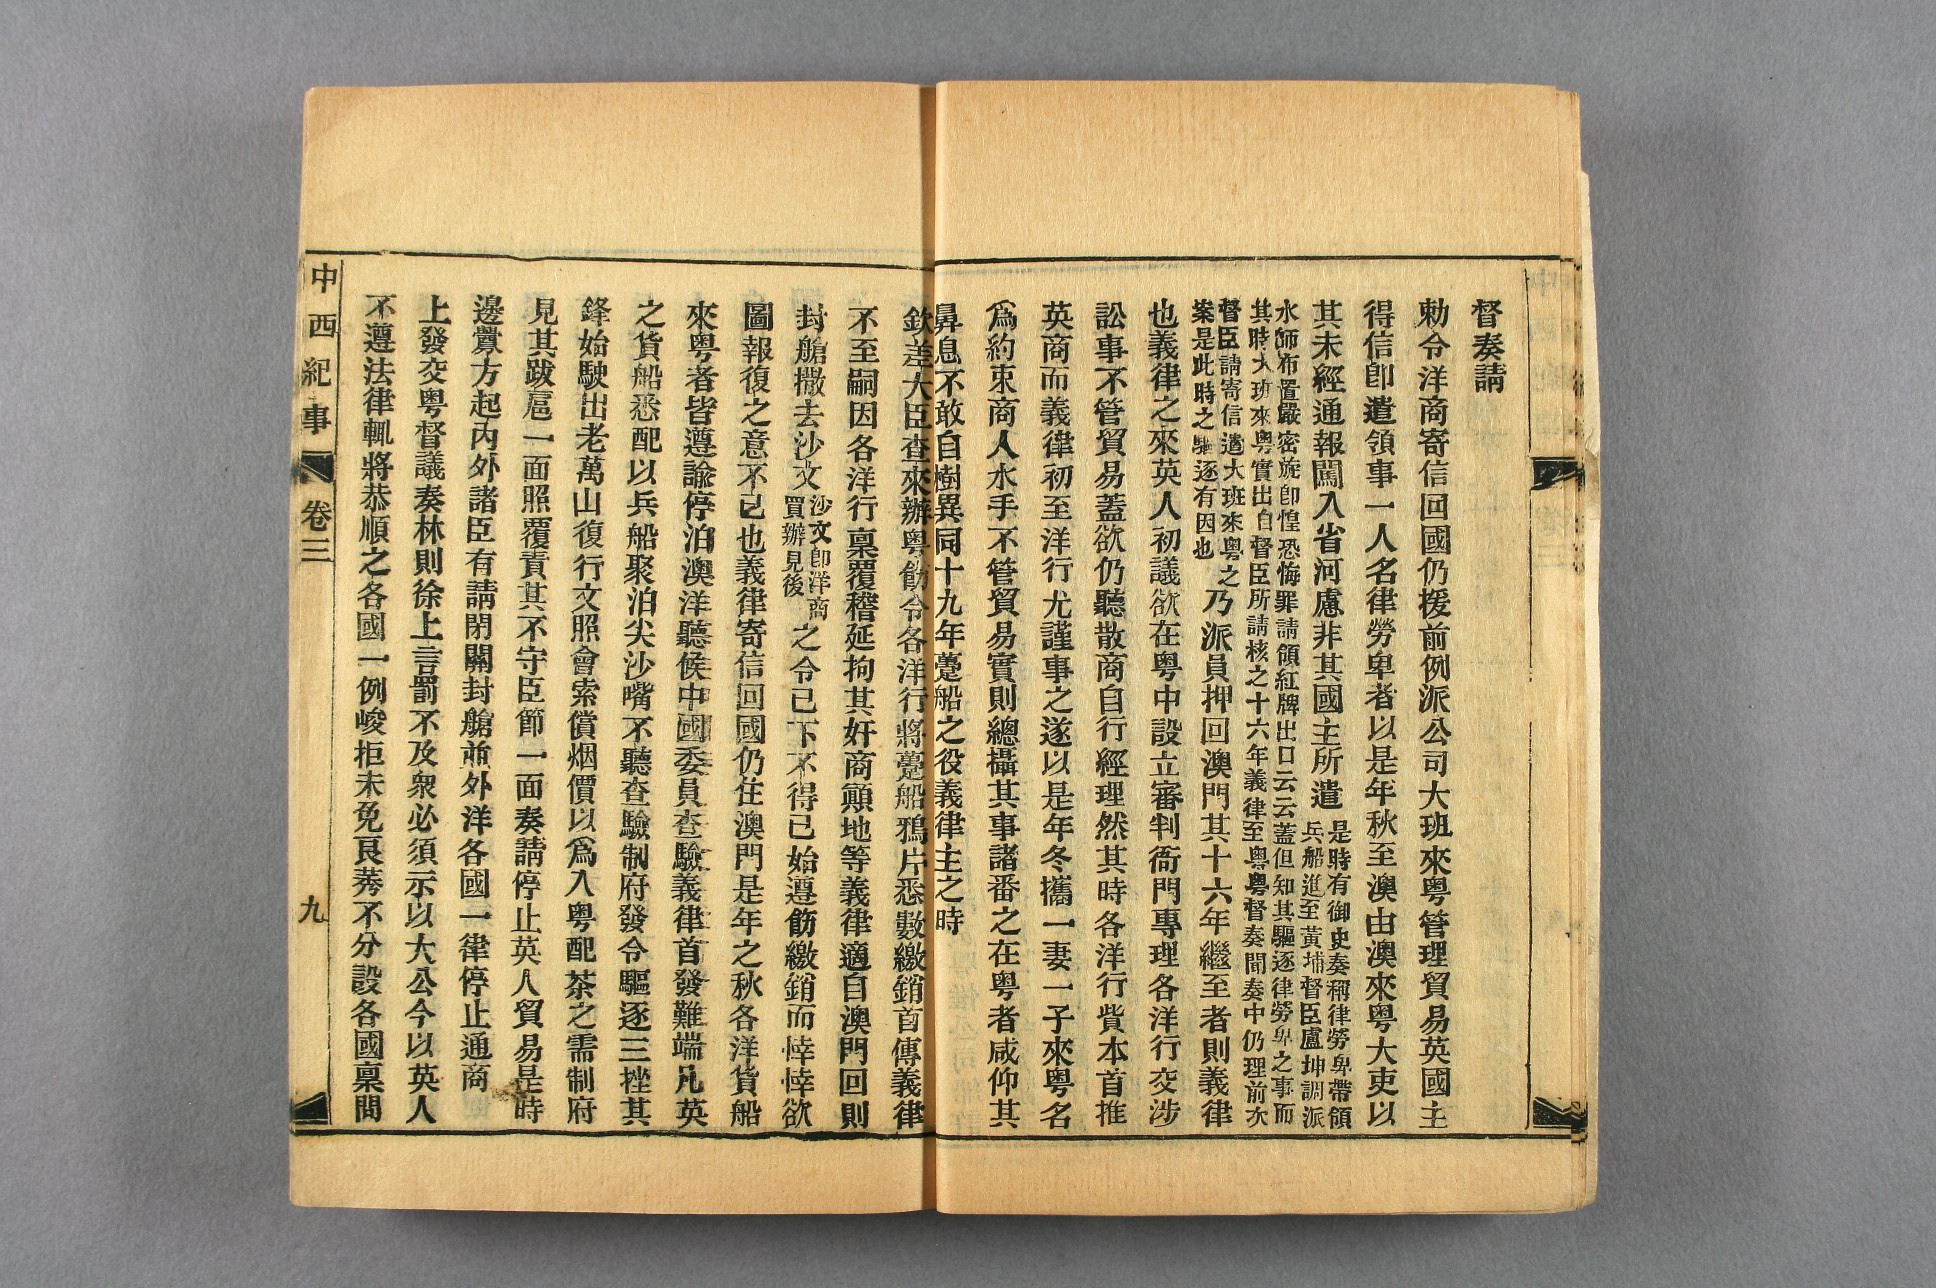 督奏請
勅令洋商寄信回國仍援前例派公司大班來粤管理貿易英國主
得信卽遣領事一人名律勞卑者以是年秋至澳由澳來粤大吏以
其未經通報闖入省河慮非其國主所遣
是時有御史奏稱律勞卑帶領
兵船進至黃埔督臣盧坤調派
水師布置嚴密旋卽惶恐悔罪請領紅牌出口云云蓋但知其驅逐律勞卑之事而
其時大班來粤實出自督臣所請核之十六年義律至粤粤督奏聞奏中仍理前次
督臣請寄信遣大班來粤之
案是此時之驅逐有因也
乃派員押回澳門其十六年繼至者則義律
也義律之來英人初議欲在粤中設立審判衙門專理各洋行交涉
訟事不管貿易蓋欲仍聽散商自行經理然其時各洋行貲本首推
英商而義律初至洋行尤謹事之遂以是年冬攜一妻一子來粤名
爲約束商人水手不管貿易實則總攝其事諸番之在粤者咸仰其
鼻息不敢自樹異同十九年躉船之役義律主之時
欽差大臣查來辦粤飭令各洋行將躉船鴉片悉數繳銷首傳義律
不至嗣因各洋行稟覆稽延拘其奸商顚地等義律適自澳門回則
封艙撤去沙文
沙文卽洋商
買辦見後
之令已下不得已始遵飭繳銷而悻悻欲
圖報復之意不已也義律寄信回國仍住澳門是年之秋各洋貨船
來粤者皆遵諭停泊澳洋聽候中國委員查驗義律首發難端凡英
之貨船悉配以兵船聚泊尖沙嘴不聽查驗制府發令驅逐三挫其
鋒始駛出老萬山復行文照會索償烟價以爲入粤配茶之需制府
見其跋扈一面照覆責其不守臣節一面奏請停止英人貿易是時
邊釁方起內外諸臣有請閉關封艙並外洋各國一律停止通商
上發交粤督議奏林則徐上言罰不及衆必須示以大公今以英人
不遵法律輒將恭順之各國一例峻拒未免艮莠不分設各國稟問
中西紀事
卷三
九